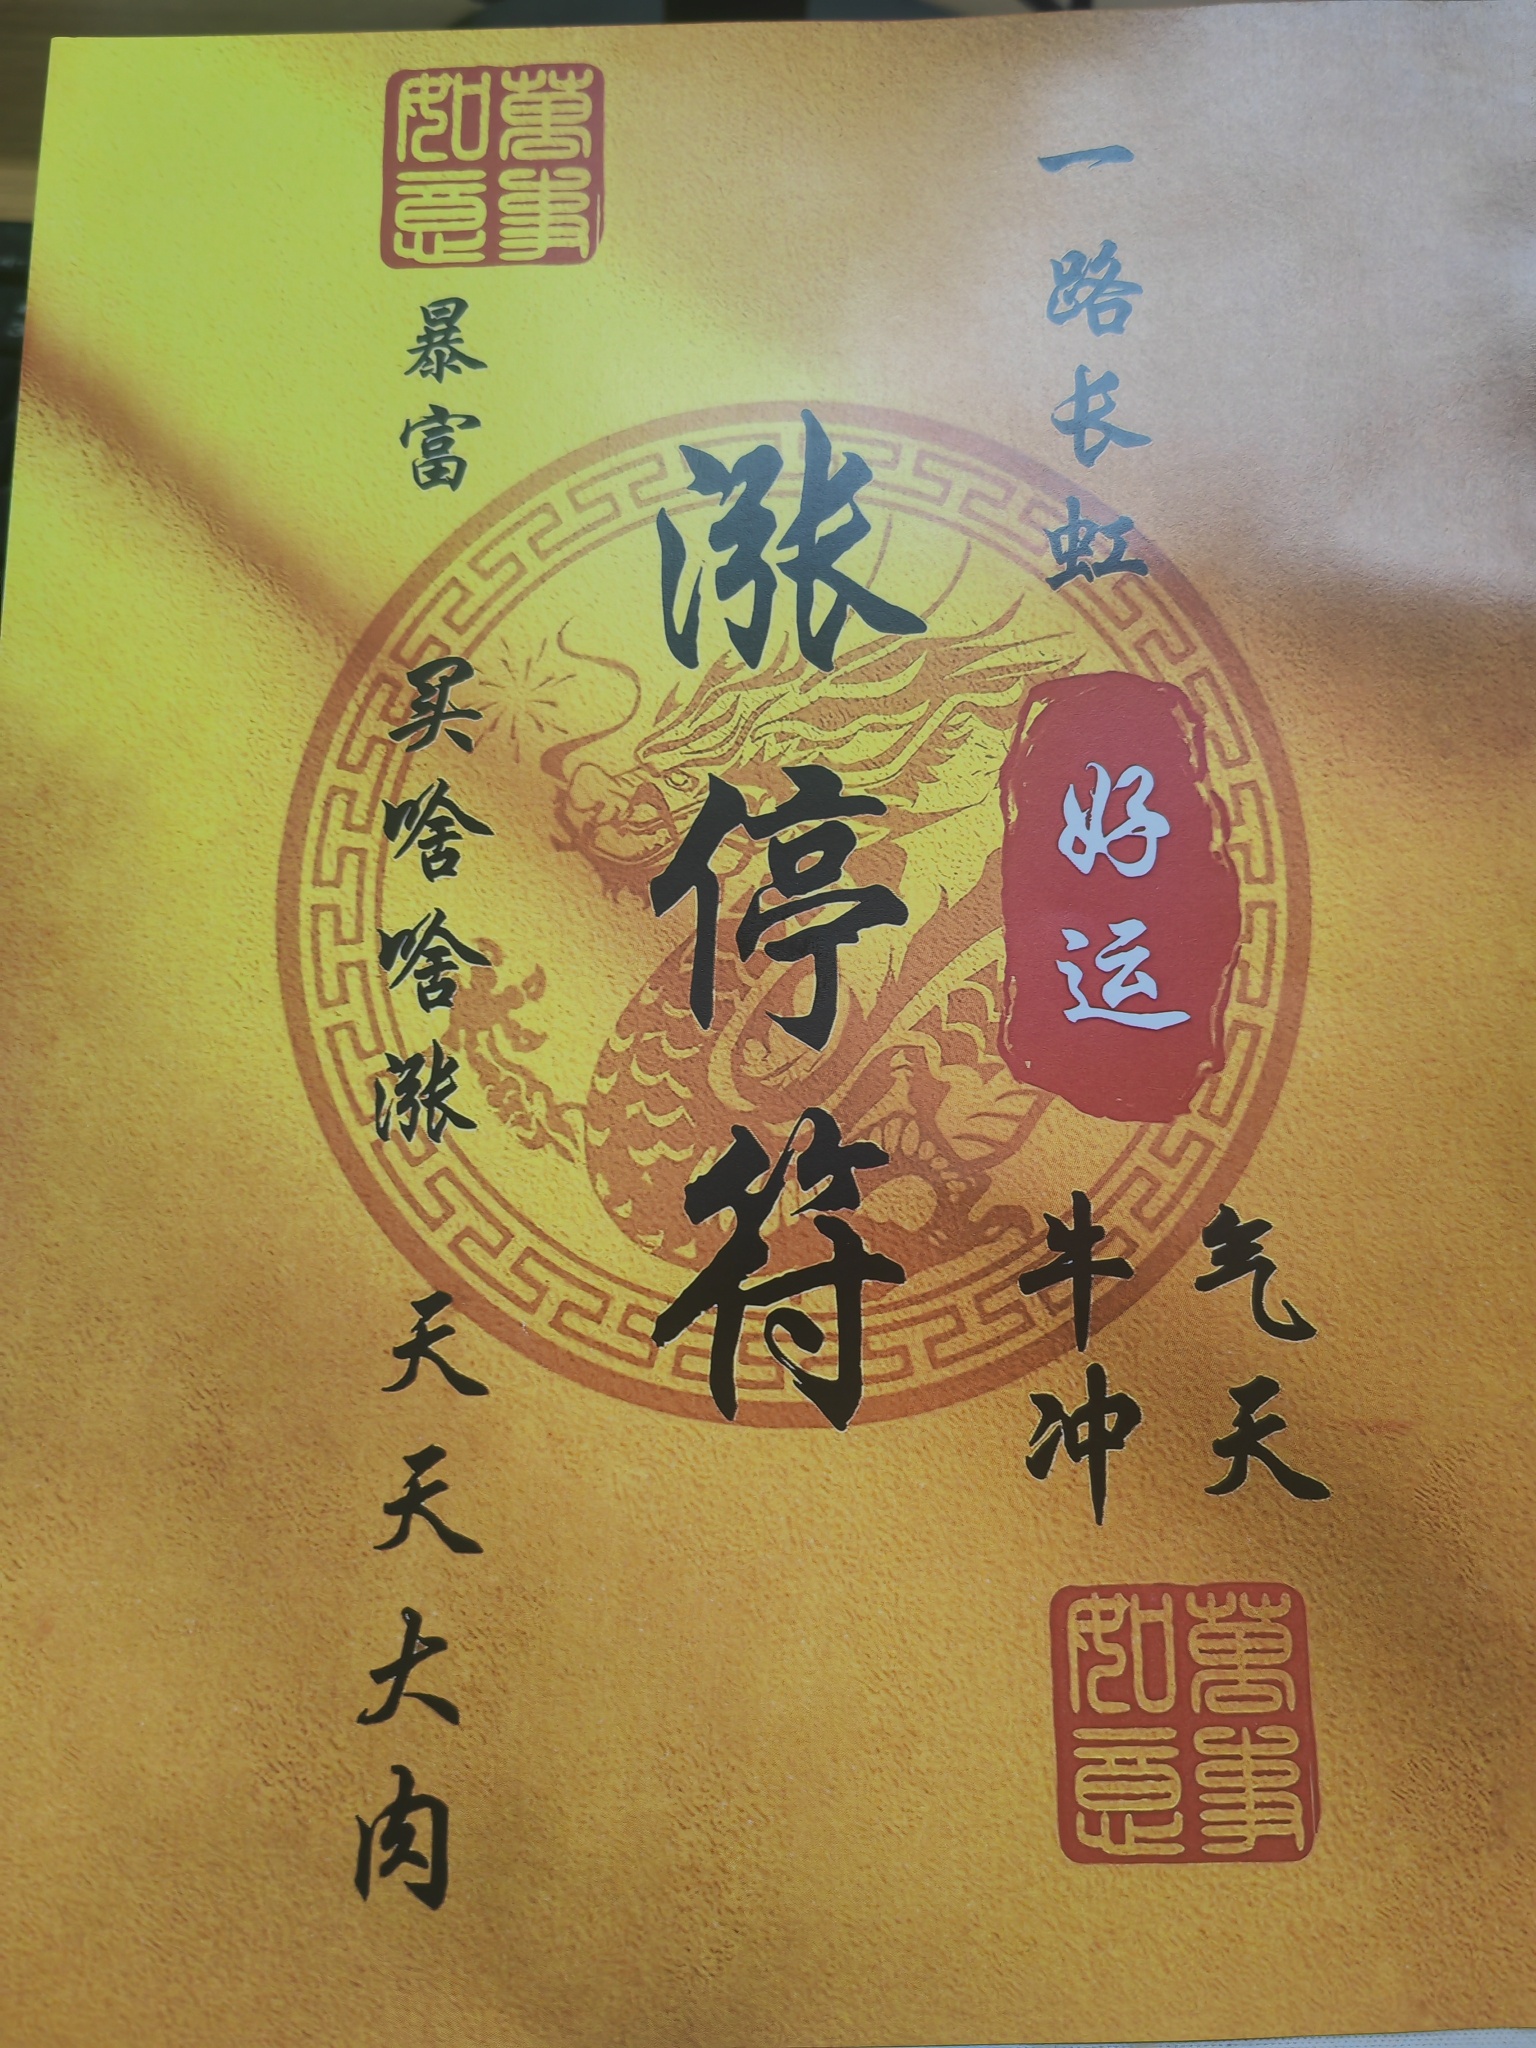 一路长虹
好运
气天
牛冲
涨停符
萬事
如意
暴富
买啥啥涨
天天大肉
萬事
如意